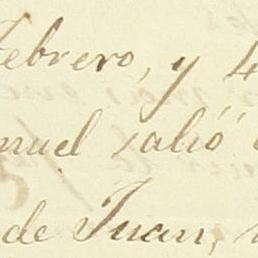 Febrero, y 4
nuel salió
de Juan,